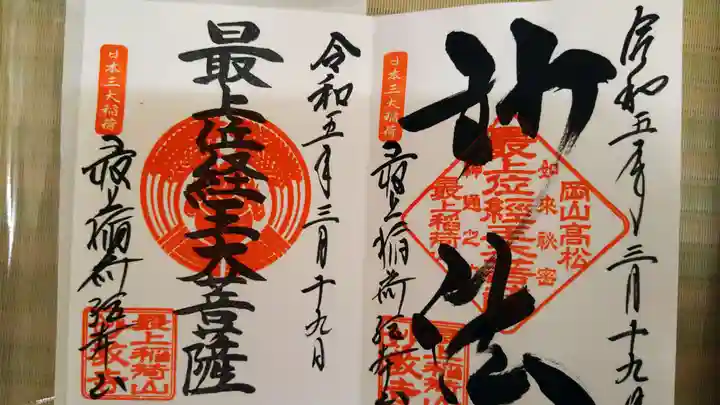 令和五年三月十九日
妙法
岡山高松
如来秘密
神通之
最上位経王大菩薩
最上稲荷
日本三大稲荷
最上稲荷奉山
令和五年三月十九日
最上位経王大菩薩
日本三大稲荷
最上稲荷奉山
最上稲荷山
妙教寺